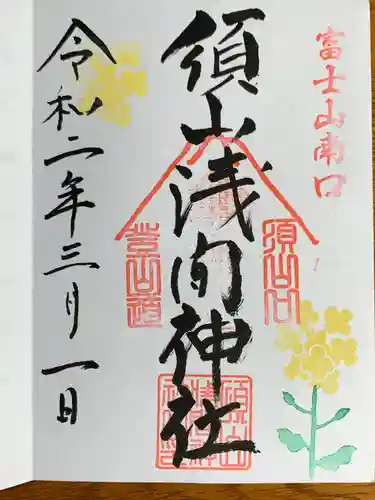 富士山南口
須山浅間神社
須山口
登山道
令和二年三月一日